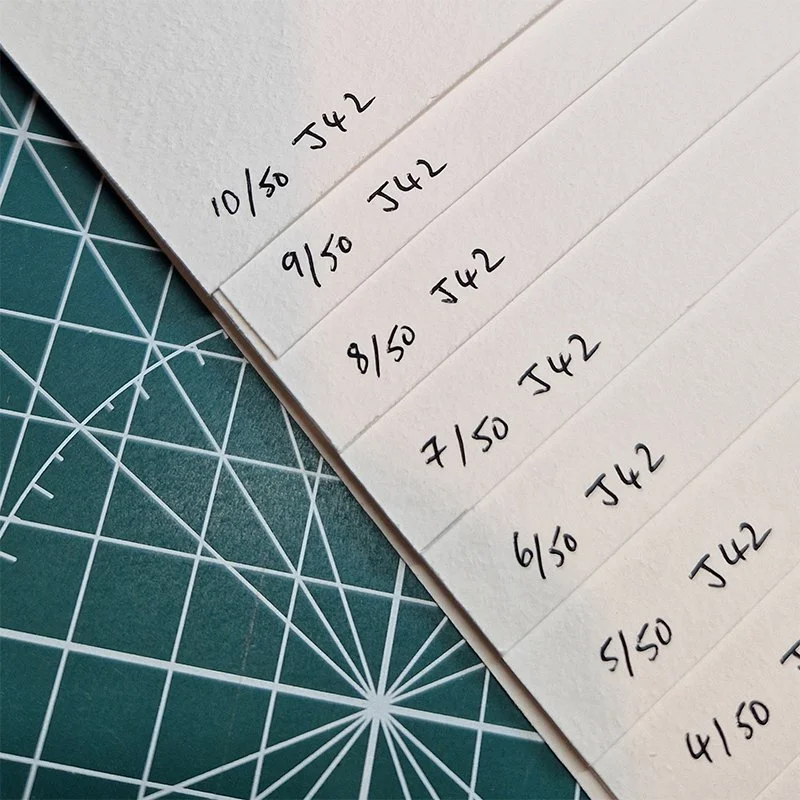 10/50 J42
9/50 J42
8/50 J42
7/50 J42
6/50 J42
5/50 J42
4/50 J